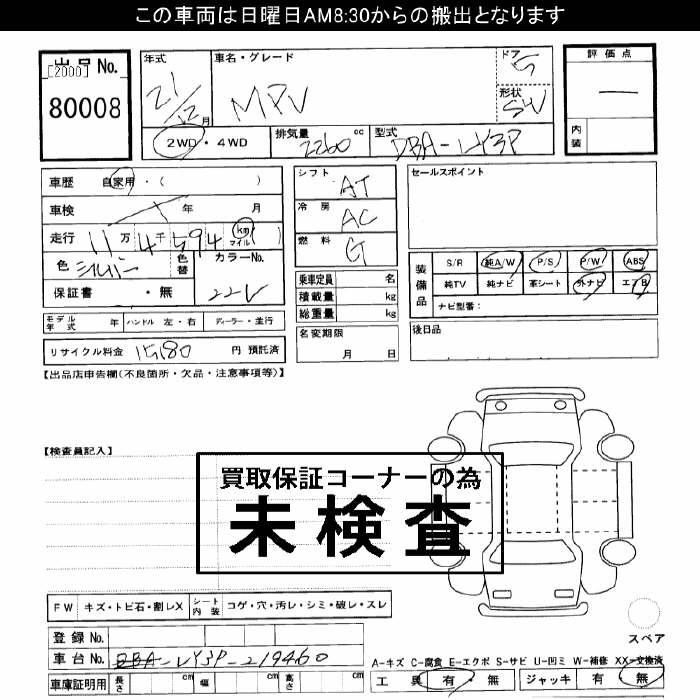 この車両は日曜日AM8:30からの搬出となります
出品No.
[2000]
80008
年式
21/12月
車名・グレード
MPV
ドア
5
形状
SW
評価点
—
内装
2WD・4WD
排気量 2260 cc
型式 DBA-LY3P
車歴 自家用・( )
車検 年 月
走行 11万4千594 km マイル
色 シルバー
色替
カラーNo.
22V
保証書 ・無
シフト AT
冷房 AC
燃料 G
乗車定員 名
積載量 kg
総重量 kg
セールスポイント
装備品
S/R 純A/W P/S P/W ABS
純TV 純ナビ 革シート 外ナビ エアB
ナビ型番:
モデル年式 年 ハンドル 左・右 ディーラー・並行
リサイクル料金 15180 円 預託済
名変期限
月 日
後日品
【出品店申告欄(不良箇所・欠品・注意事項等)】
【検査員記入】
買取保証コーナーの為
未検査
FW キズ・トビ石・割レX
シート内装 コゲ・穴・汚レ・シミ・破レ・スレ
スペア
登録No.
車台No. DBA-LY3P-219460
車庫証明用 長さ cm 幅 cm 高さ cm
A-キズ C-腐食 E-エクボ S-サビ U-凹ミ W-補修 XX-交換済
工具 有・無 ジャッキ 有・無